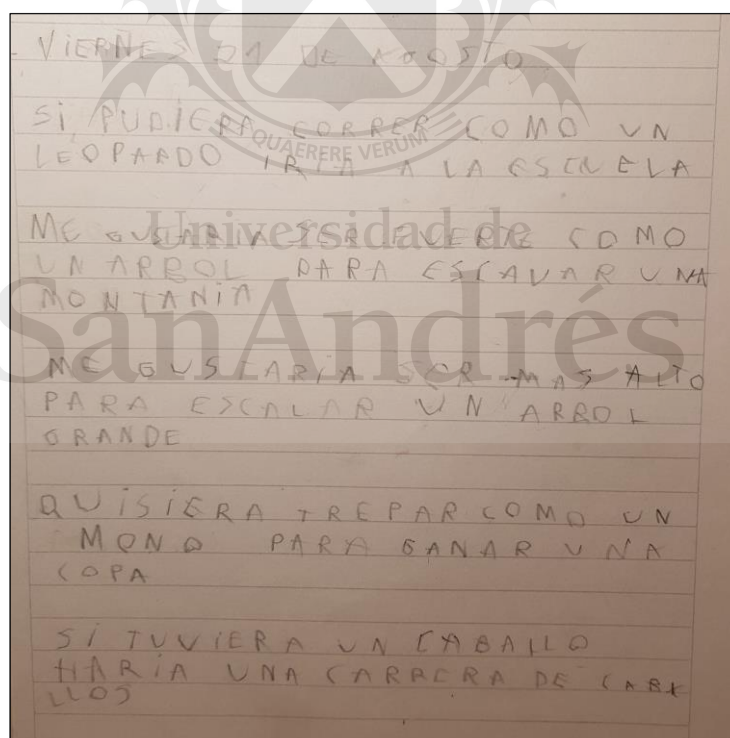 VIERNES 21 DE AGOSTO
SI PUDIERA CORRER COMO UN
LEOPARDO IRIA A LA ESCUELA
ME GUSTARIA SER FUERTE COMO
UN ARBOL PARA ESCAVAR UNA
MONTANIA
ME GUSTARIA SER MAS ALTO
PARA ESCALAR UN ARBOL
GRANDE
QUISIERA TREPAR COMO UN
MONO PARA GANAR UNA
COPA
SI TUVIERA UN CABALLO
HARIA UNA CARRERA DE CABA
LLOS
QUAERERE VERUM
Universidad de
SanAndrés